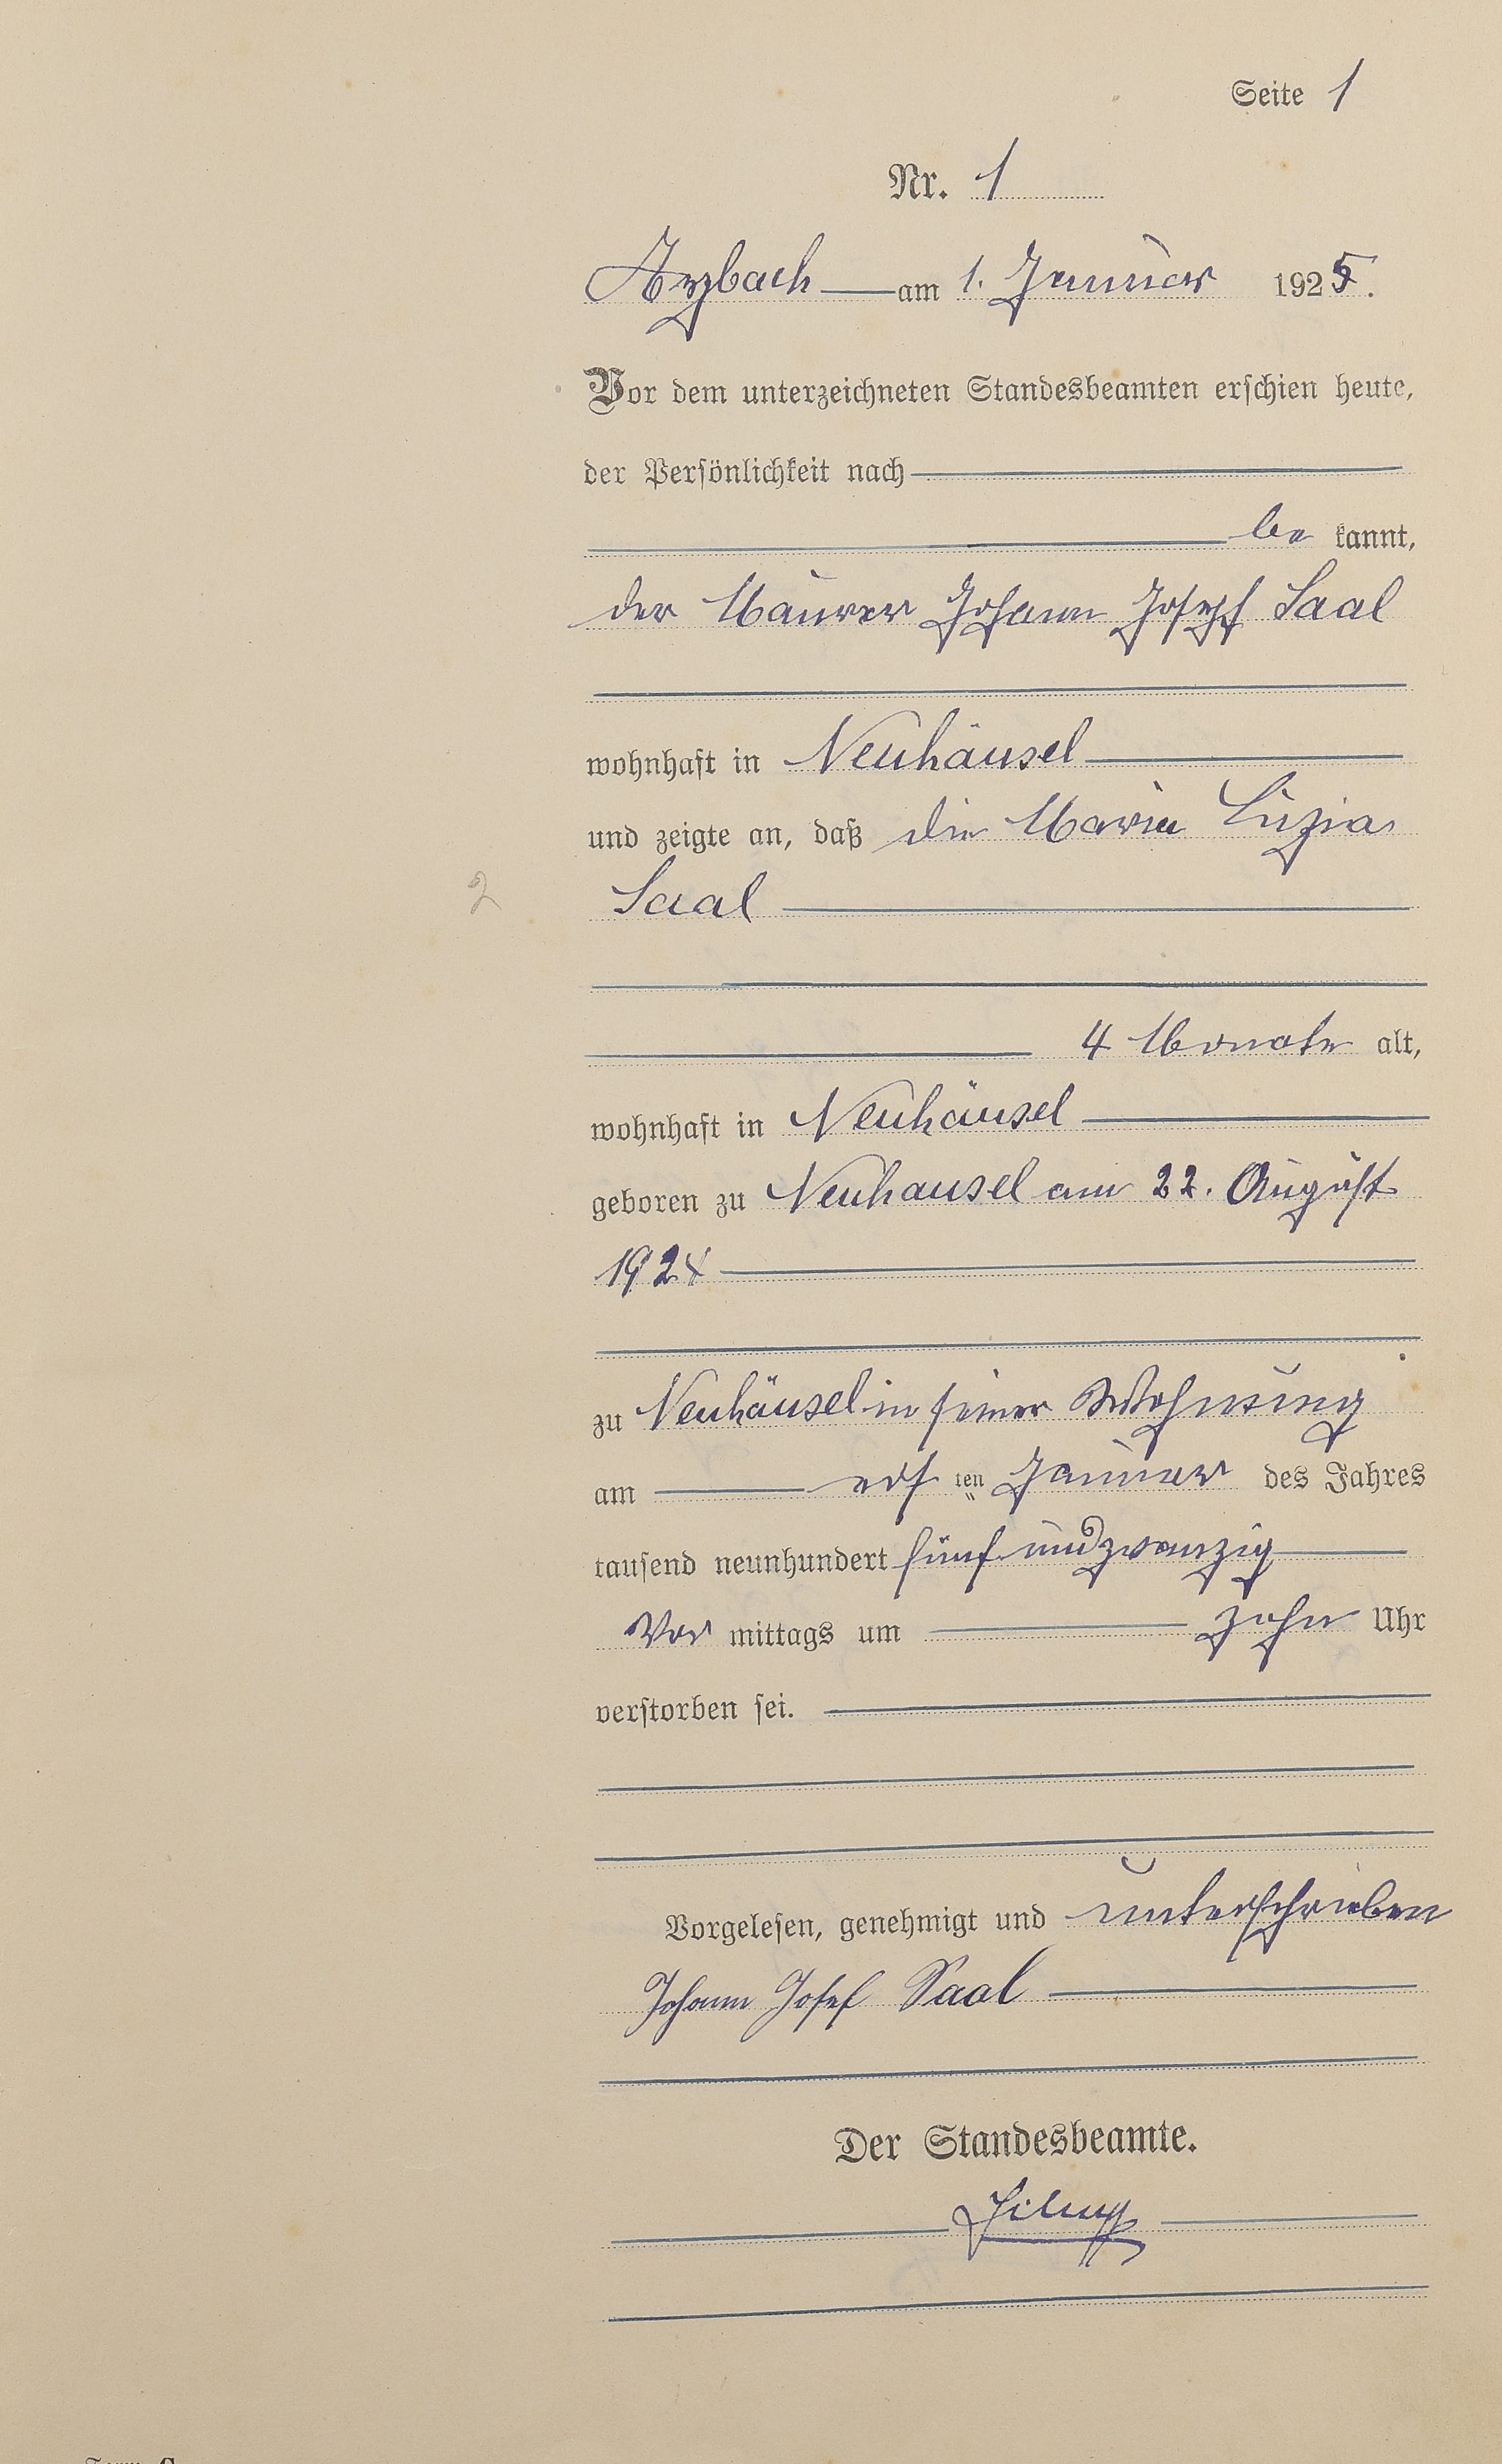 Seite 1
Nr. 1
Arzbach am 1. Januar 1925.
Vor dem unterzeichneten Standesbeamten erschien heute,
der Persönlichkeit nach
be kannt,
der Maurer Johann Joseph Saal
wohnhaft in Neuhäusel
und zeigte an, daß die Maria Luzia
2 Saal
4 Monate alt,
wohnhaft in Neuhäusel
geboren zu Neuhausel am 22. August
1924
zu Neuhäusel in seiner Wohnung
am ers ten Januar des Jahres
tausend neunhundert fünf und zwanzig
Vor mittags um zehn Uhr
verstorben sei.
Vorgelesen, genehmigt und unterschrieben
Johann Josef Saal
Der Standesbeamte.